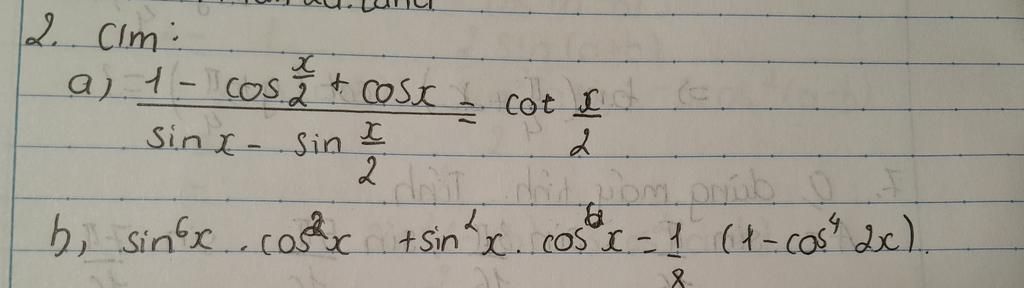 2. C/m:
a, (1 - cos x/2 + cosx)/(sin x - sin x/2) = cot x/2
b, sin⁶x . cos²x + sin²x . cos⁶x = 1/8 (1 - cos⁴ 2x).